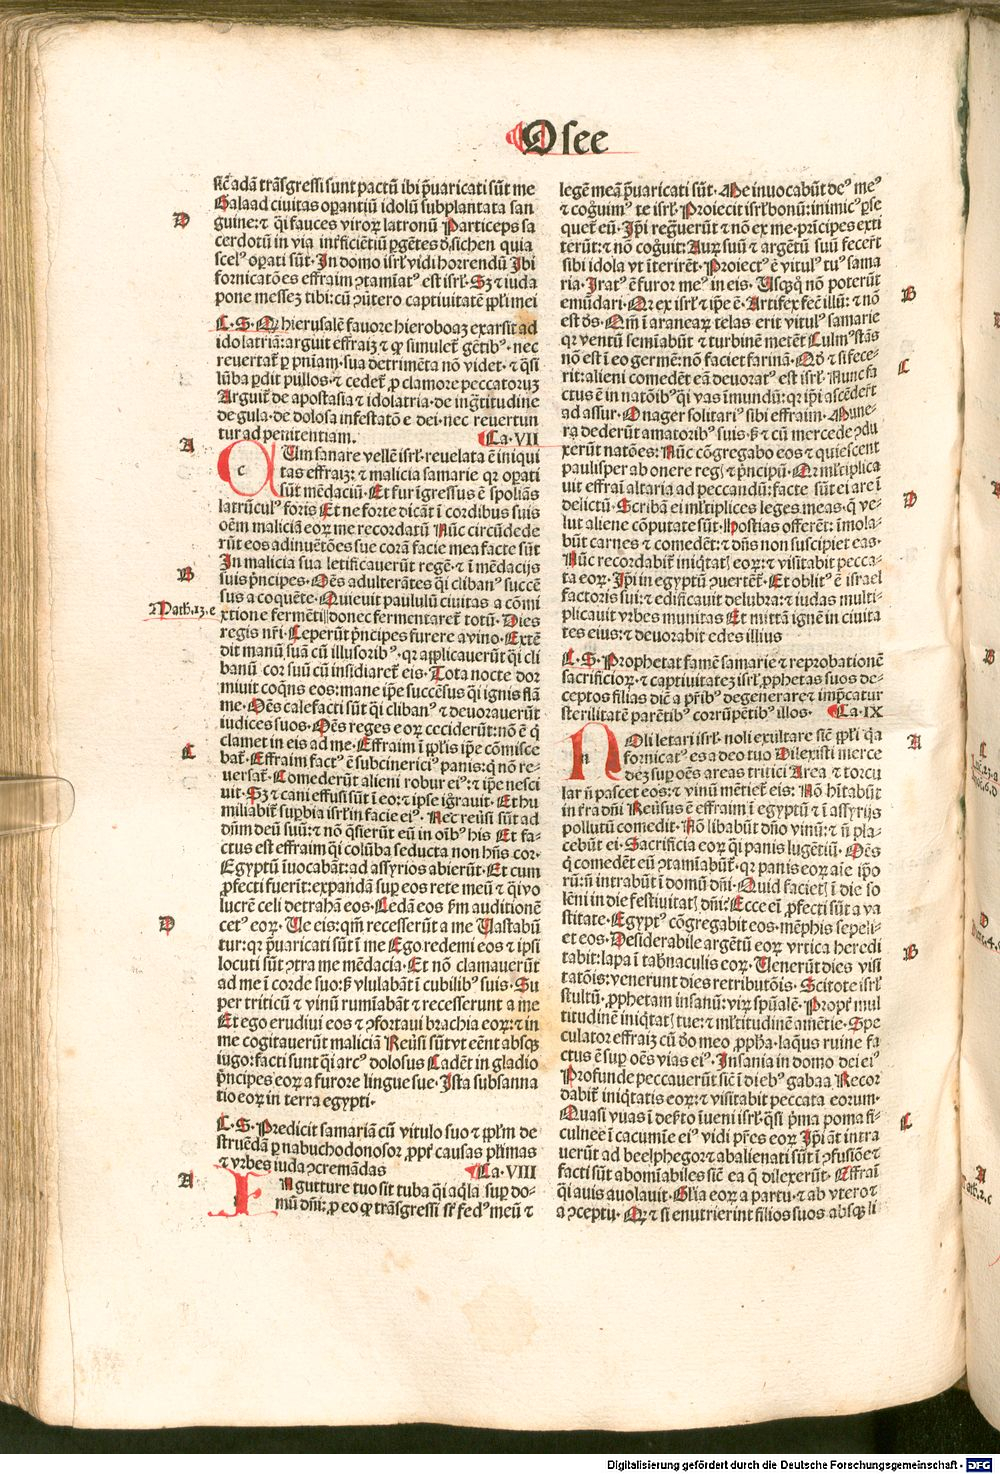 Osee
sic̄ adā trāsgressi sunt pactū ibi p̄uaricati sūt me
Galaad ciuitas oꝑantiū idolū subplantata san
D
guine: ⁊ q̄i fauces viroꝝ latronū Particeps sa
cerdotū in via int̄ficiētiū ꝑgētes d̓ sichen quia
scelꝰ oꝑati sūt· In domo isrl̓ vidi horrendū Ibi
fornicatōes effraim ꝯtamiatꝰ est isrl̓· Sꝫ ⁊ iuda
pone messeꝫ tibi: cū ꝯūtero captiuitatē ppl̓i mei
C·S·Qꝛ hierusalē fauore hieroboaꝫ exarsit ad
idolatriā: arguit effraiꝫ ⁊ ꝙ simulet̄ gētibꝰ· nec
reuertat̄ ꝑ pn̄iam· sua detrimēta nō videt· ⁊ q̄si
lūba ꝑdit pullos· ⁊ cedet̄ ꝓ clamore peccatoruꝫ
Arguit̄ de apostasia ⁊ idolatria· de ingr̄titudine
de gula· de dolosa infestatōe dei· nec reuertun
tur ad penitentiam. Ca·VII
A
c
Um sanare vellē isrl̓· reuelata ē iniqui
tas effraiꝫ: ⁊ malicia samarie qꝛ oꝑati
sūt mēdaciū· Et fur īgressus ē spoliās
latrūculꝰ foris Et ne forte dicāt ī cordibus suis
oēm maliciā eoꝝ me recordatū Nūc circūdede
rūt eos adinuētōes sue corā facie mea facte sūt
In malicia sua letificauerūt regē· ⁊ ī mēdacijs
B
suis pn̄cipes· Oēs adulterātes q̄i clibanꝰ succē
sus a coquēte· Quieuit paululū ciuitas a cōmi
Math.13.e
xtione fermēti donec fermentaret̄ totū· Dies
regis nr̄i· Ceperūt pn̄cipes furere a vino· Extē
dit manū suā cū illusoribꝰ· qꝛ applicauerūt q̄i cli
banū cor suū cū insidiaret̄ eis· Tota nocte dor
miuit coqn̄s eos: mane ip̄e succēsus q̄i ignis flā
me· Oēs calefacti sūt q̄i clibanꝰ ⁊ deuorauerūt
iudices suos· Oēs reges eoꝝ ceciderūt: nō ē q̄
clamet in eis ad me· Effraim ī ppl̓is ip̄e cōmisce
C
bat̄· Effraim factꝰ ē subcinericiꝰ panis: q̄ nō re-
uersat̄· Comederūt alieni robur eiꝰ: ⁊ ip̄e nesci
uit· Sꝫ ⁊ cani effusi sūt ī eo: ⁊ ipse igr̄auit· Et hu
miliabit̄ suꝑbia isrl̓ in facie eiꝰ· Nec reūsi sūt ad
dn̄m deū suū: ⁊ nō q̄sierūt eū in oībꝰ his Et fa-
ctus est effraim q̄i colūba seducta non hn̄s cor·
Egyptū īuocabāt: ad assyrios abierūt· Et cum
ꝓfecti fuerīt: expandā suꝑ eos rete meū ⁊ q̄i vo
lucrē celi detrahā eos· Cedā eos s̄m auditionē
D
cetꝰ eoꝝ· Ve eis: qm̄ recesserūt a me Vastabū
tur: qꝛ p̄uaricati sūt ī me Ego redemi eos ⁊ ipsi
locuti sūt ꝯtra me mēdacia· Et nō clamauerūt
ad me ī corde suo: sꝫ vlulabāt ī cubilibꝰ suis· Su
per triticū ⁊ vinū rumīabāt ⁊ recesserunt a me
Et ego erudiui eos ⁊ ꝯfortaui brachia eoꝝ: ⁊ in
me cogitauerūt maliciā Reūsi sūt vt eēnt absqꝫ
iugo: facti sunt q̄i arcꝰ dolosus Cadēt in gladio
pn̄cipes eoꝝ a furore lingue sue· Ista subsanna
tio eoꝝ in terra egypti·
C·S· Predicit samariā cū vitulo suo ⁊ ppl̓m de
struēdā ꝑ nabuchodonosor ꝓpt̄ causas pl̓imas
⁊ vrbes iuda ꝯcremādas Ca·VIII
A
I
N gutture tuo sit tuba q̄i aq̄la suꝑ do-
mū dn̄i: ꝓ eo ꝙ trāsgressi sr̄ fedꝰ meū ⁊
legē meā p̄uaricati sūt· Me inuocabūt deꝰ meꝰ
⁊ cogn̄uimꝰ te isrl̓· Proiecit isrl̓ bonū: inimicꝰ ꝑse
quet̄ eū· Ip̄i regn̄uerūt ⁊ nō ex me· prīcipes exti
terūt: ⁊ nō cogn̄uit: Auꝝ suū ⁊ argētū suū fecert̄
sibi idola vt īterirēt· Proiectꝰ ē vitulꝰ tuꝰ sama
ria· Iratꝰ ē furor meꝰ in eis· Usq̄qꝫ nō poterūt
B
emūdari· Qꝛ ex isrl̓ ⁊ ip̄e ē· Artifex fec̄ illū: ⁊ nō
est ds̄· Qm̄ ī araneaꝝ telas erit vitulꝰ samarie
qꝛ ventū semīabūt ⁊ turbinē metēt Culmꝰ stās
C
nō est ī eo germē: nō faciet farinā· Qd̓ ⁊ si fece-
rit: alieni comedēt eā deuoratꝰ est isrl̓· Nunc fa
ctus ē in natōibꝰ q̄i vas īmundū: qꝛ ip̄i ascēdert̄
ad assur· Onager solitariꝰ sibi effraim· Mune-
ra dederūt amatoribꝰ suis· sꝫ ⁊ cū mercede ꝯdu
xerūt natōes: Nūc cōgregabo eos ⁊ quiescent
paulisper ab onere regꝭ ⁊ pn̄cipū· Qꝛ ml̓tiplica
D
uit effraī altaria ad peccandū: facte sūt ei are ī
delictū· Scribā ei ml̓tiplices leges meas· q̄ ve-
lut aliene cōputate sūt· Hostias offerēt: īmola-
būt carnes ⁊ comedēt: ⁊ dn̄s non suscipiet eas·
Nūc recordabit̄ iniqtatꝭ eoꝝ: ⁊ visitabit pecca-
ta eoꝝ· Ip̄i in egyptū ꝯuertēt̄· Et oblitꝰ ē israel
factoris sui: ⁊ edificauit delubra: ⁊ iudas multi-
plicauit vrbes munitas Et mittā ignē in ciuita
tes eius: ⁊ deuorabit edes illius
C·S· Prophetat famē samarie ⁊ reprobationē
sacrificioꝝ· ⁊ captiuitateꝫ isrl̓· ꝓphetas suos de-
ceptos filias diē a pr̄ibꝰ degenerare ⁊ imp̄catur
sterilitatē parētibꝰ corrūpētibꝰ illos· Ca·IX
A
n
Oli letari isrl̓· noli exultare sic̄ ppl̓i q̄a
fornicatꝰ es a deo tuo Dilexisti merce
deꝫ suꝑ oēs areas tritici Area ⁊ torcu
lar n̄ pascet eos: ⁊ vinū mētiet̄ eis: Nō hītabūt
in tr̄a dn̄i Reūsus ē effraim ī egyptū ⁊ ī assyrijs
pollutū comedit· Nō libabūt dn̄o vinū: ⁊ n̄ pla-
cebūt ei· Sacrificia eoꝝ q̄i panis lugētiū· Oēs
q̄ comedēt eū ꝯtamīabūt̄· qꝛ panis eoꝝ aīe ip̄o
rū: n̄ intrabūt ī domū dn̄i· Quid facietꝭ ī die so
lēni in die festiuitatꝭ dn̄i: Ecce eī ꝓfecti sūt a va
stitate· Egyptꝰ cōgregabit eos· mēphis sepeli-
B
et eos· Desiderabile argētū eoꝝ vrtica heredi
tabit: lapa ī tab̓naculis eoꝝ· Venerūt dies visi
tatōis: venerunt dies retributōis· Scitote isrl̓
stultū, ꝓphetam insanū: viꝝ spūalē· Propt̄ mul
titudinē iniqtatꝭ tue: ⁊ ml̓titudinē amētie· Spe
culator effraiꝫ cū do meo· ꝓph̄a· laqus ruine fa
ctus ē suꝑ oēs vias eiꝰ· Insania in domo dei eiꝰ
Profunde peccauerūt sic̄ ī diebꝰ gabaa Recor
dabit̄ iniqtatis eoꝝ: ⁊ visitabit peccata eorum·
C
Quasi vuas ī deẜto īueni isrl̓· q̄si pr̄ma poma fi-
culnee ī cacumīe eiꝰ vidi pr̄es eoꝝ Ip̄i āt intra
uerūt ad beelphegor ⁊ abalienati sūt ī ꝯfusiōe ⁊
facti sūt abomīabiles sic̄ ea q̄ dilexerūt· Effraī
q̄i auis auolauit· Gl̓ia eoꝝ a partu· ⁊ ab vtero ⁊
a ꝯceptu· Qꝛ ⁊ si enutrierint filios suos absqꝫ li
Digitalisierung gefördert durch die Deutsche Forschungsgemeinschaft - DFG